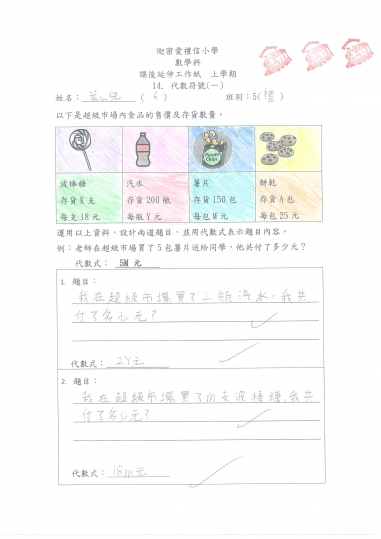 迦密愛禮信小學
數學科
課後延伸工作紙 上學期
14. 代數符號(一)
姓名： ( 6 ) 班別：5( 禮 )
以下是超級市場內食品的售價及存貨數量。
Potato Chips
波棒糖 汽水 薯片 餅乾
存貨 K 支 存貨 200 瓶 存貨 150 包 存貨 A 包
每支 18 元 每瓶 Y 元 每包 M 元 每包 25 元
運用以上資料，設計兩道題目，並用代數式表示題目內容。
例：老師在超級市場買了 5 包薯片送給同學，他共付了多少元？
代數式： 5M 元
1. 題目：
我在超級市場買了2瓶汽水，我共
付了多少元？
代數式： 2Y元
2. 題目：
我在超級市場買了m支波棒糖，我共
付了多少元？
代數式： 18m元